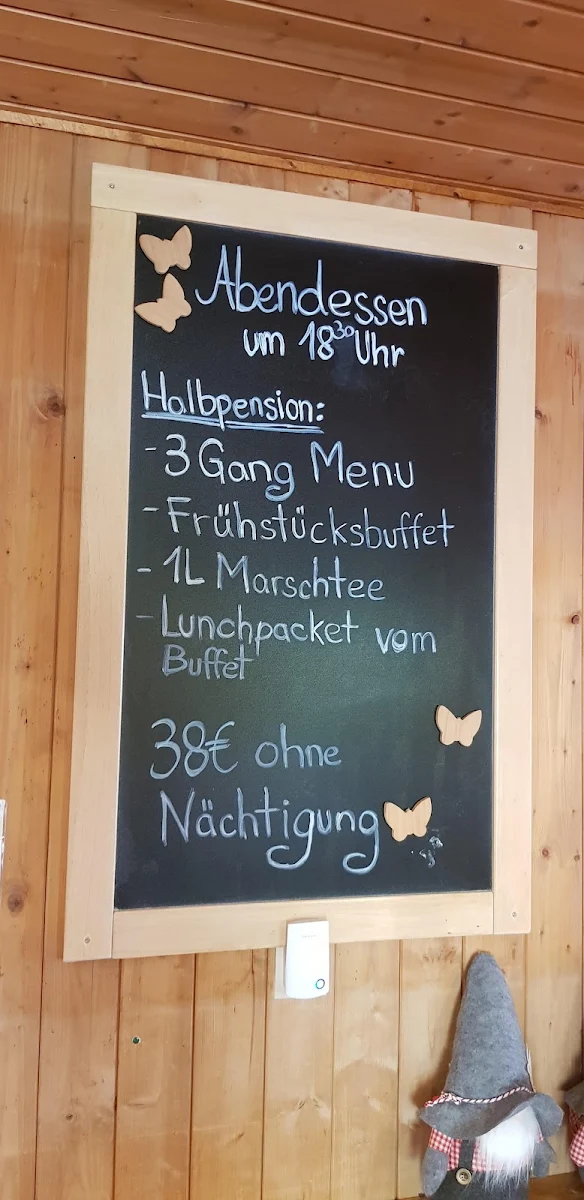 Abendessen
um 18³⁰ Uhr
Halbpension:
- 3 Gang Menu
- Frühstücksbuffet
- 1L Marschtee
- Lunchpacket vom
Buffet
38€ ohne
Nächtigung